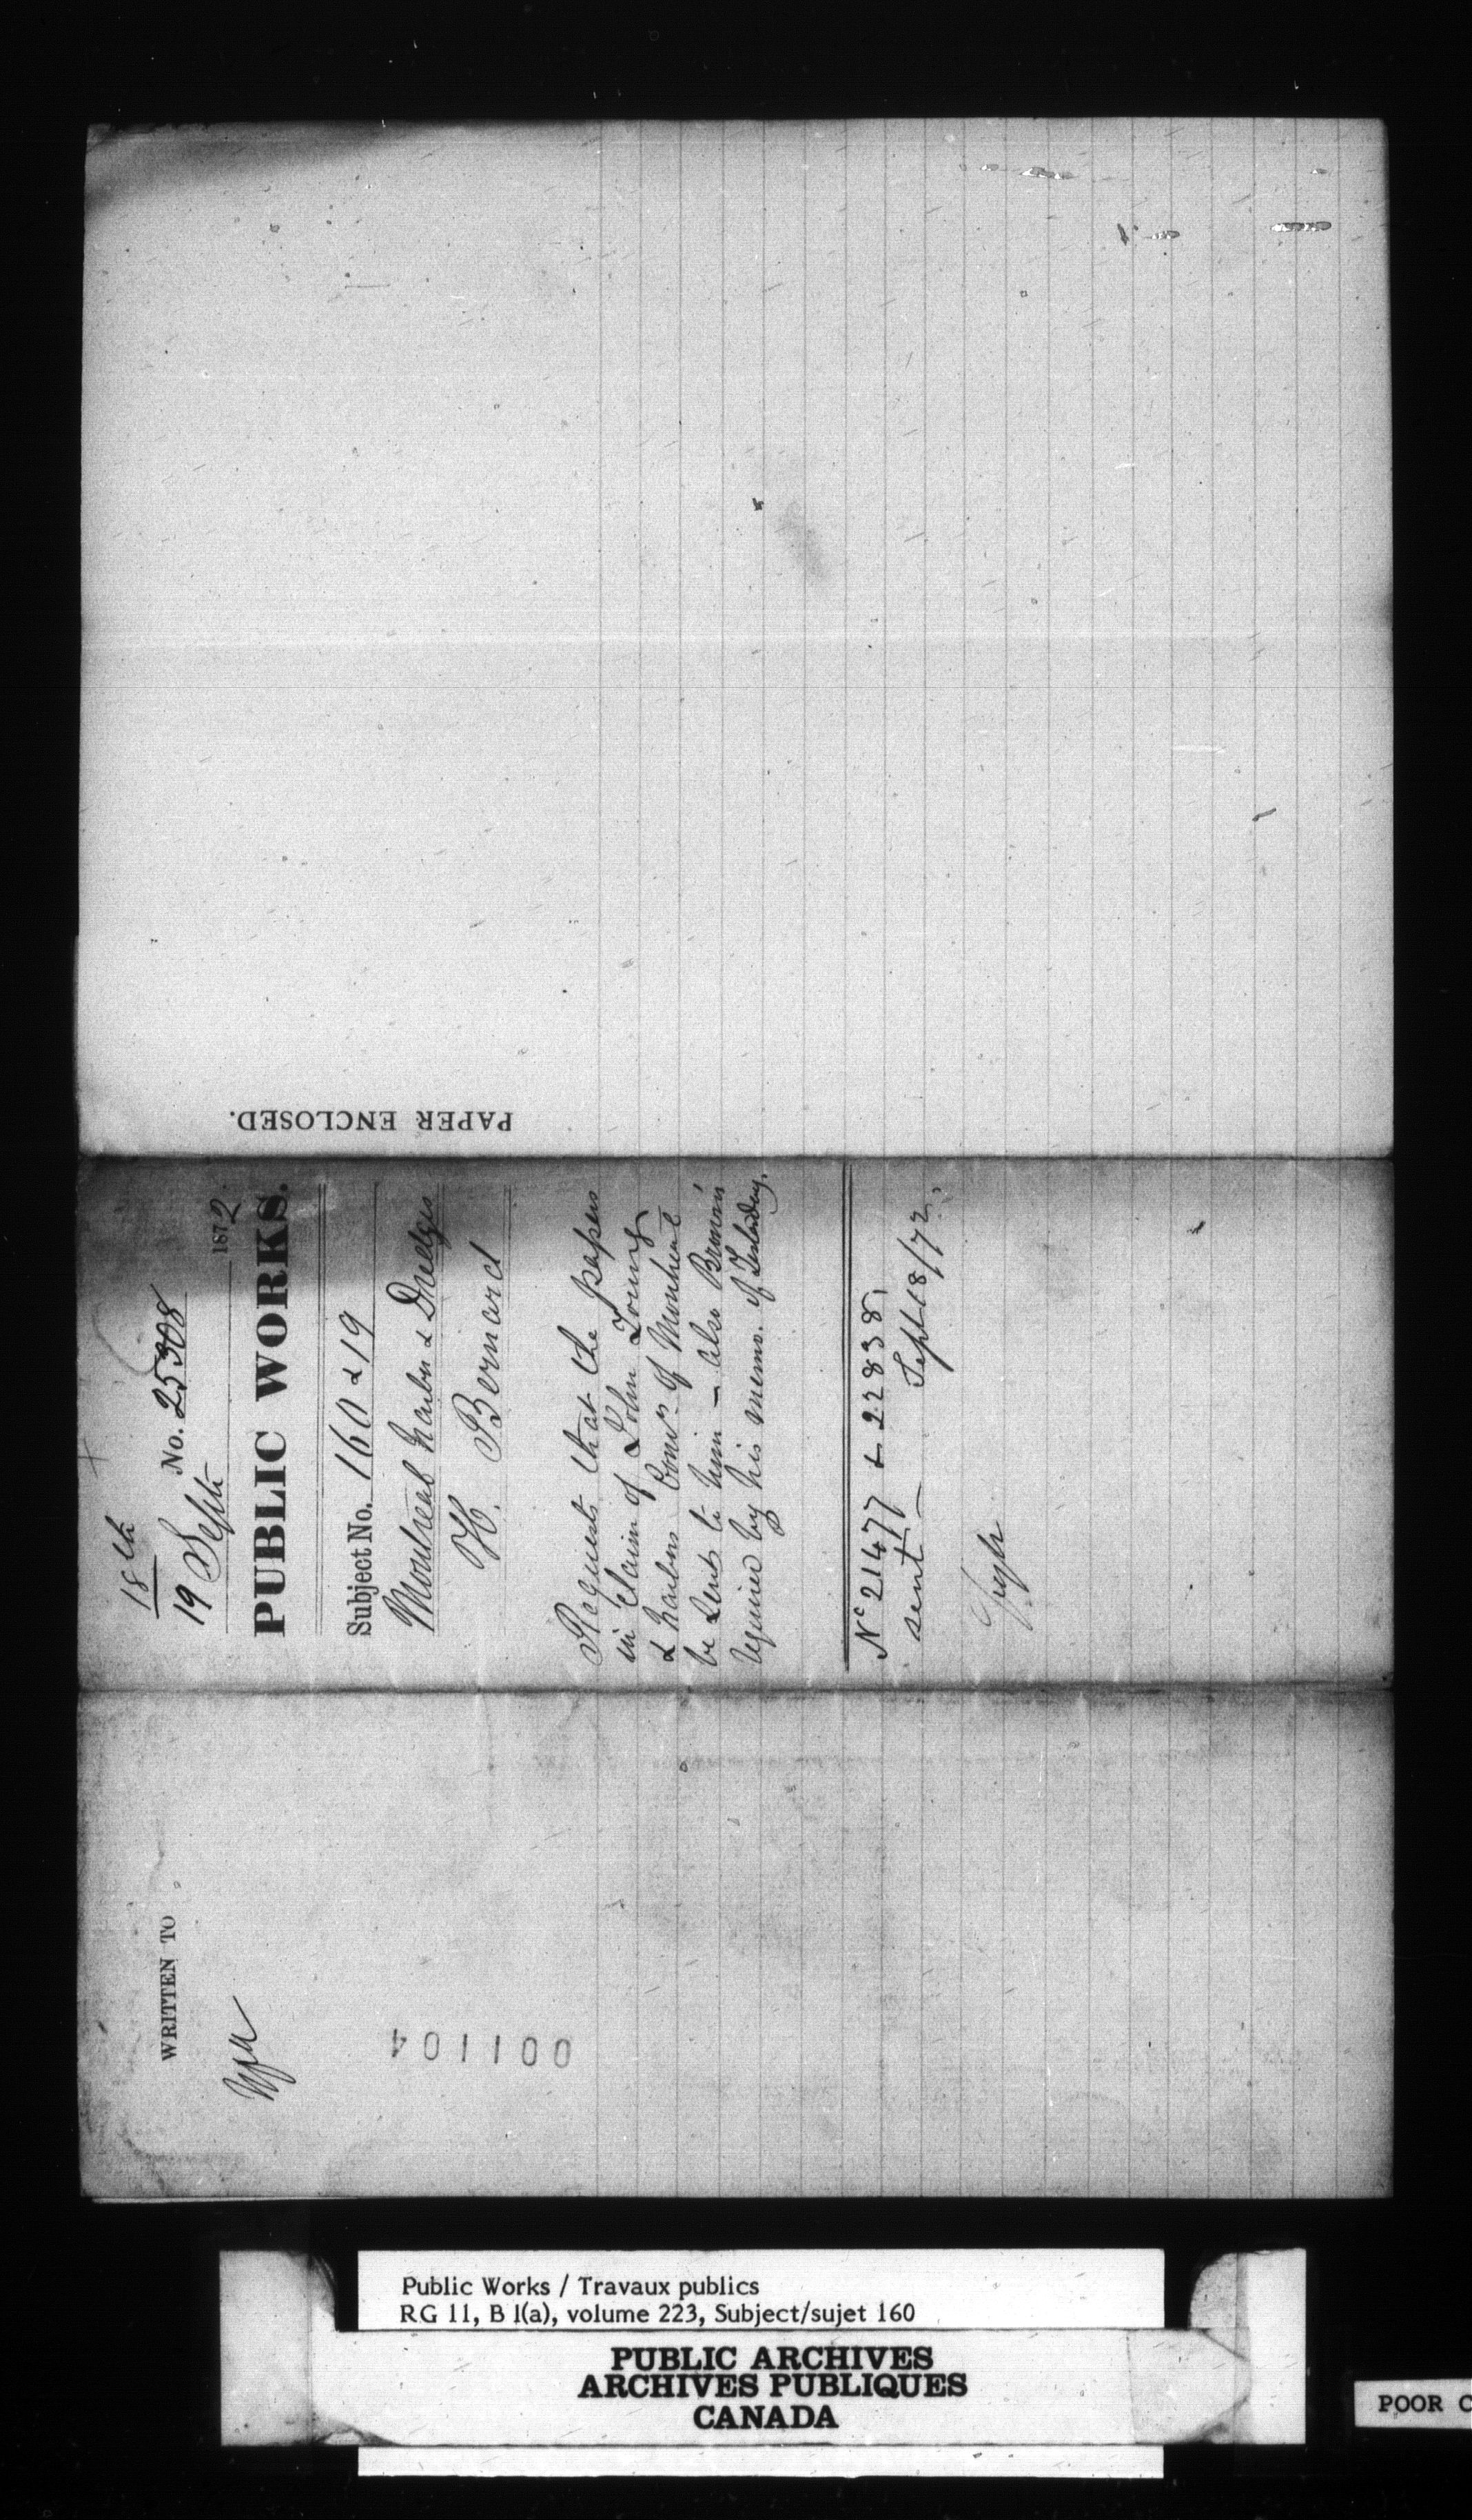 PAPER ENCLOSED.
18th
No. 25308
19 Sept 1872
PUBLIC WORKS.
Subject No. 160 & 19
Montreal Harbor & Dredges
H. Bernard
Requests that the papers
in claim of John Young
& Harbor Comrs of Montreal
be sent to him - also
required by his memo. of Yesterday.
No 21477 & 22838,
sent - Sept 18/72.
WRITTEN TO
001104
Public Works / Travaux publics
RG 11, B 1(a), volume 223, Subject/sujet 160
PUBLIC ARCHIVES
ARCHIVES PUBLIQUES
CANADA
POOR C